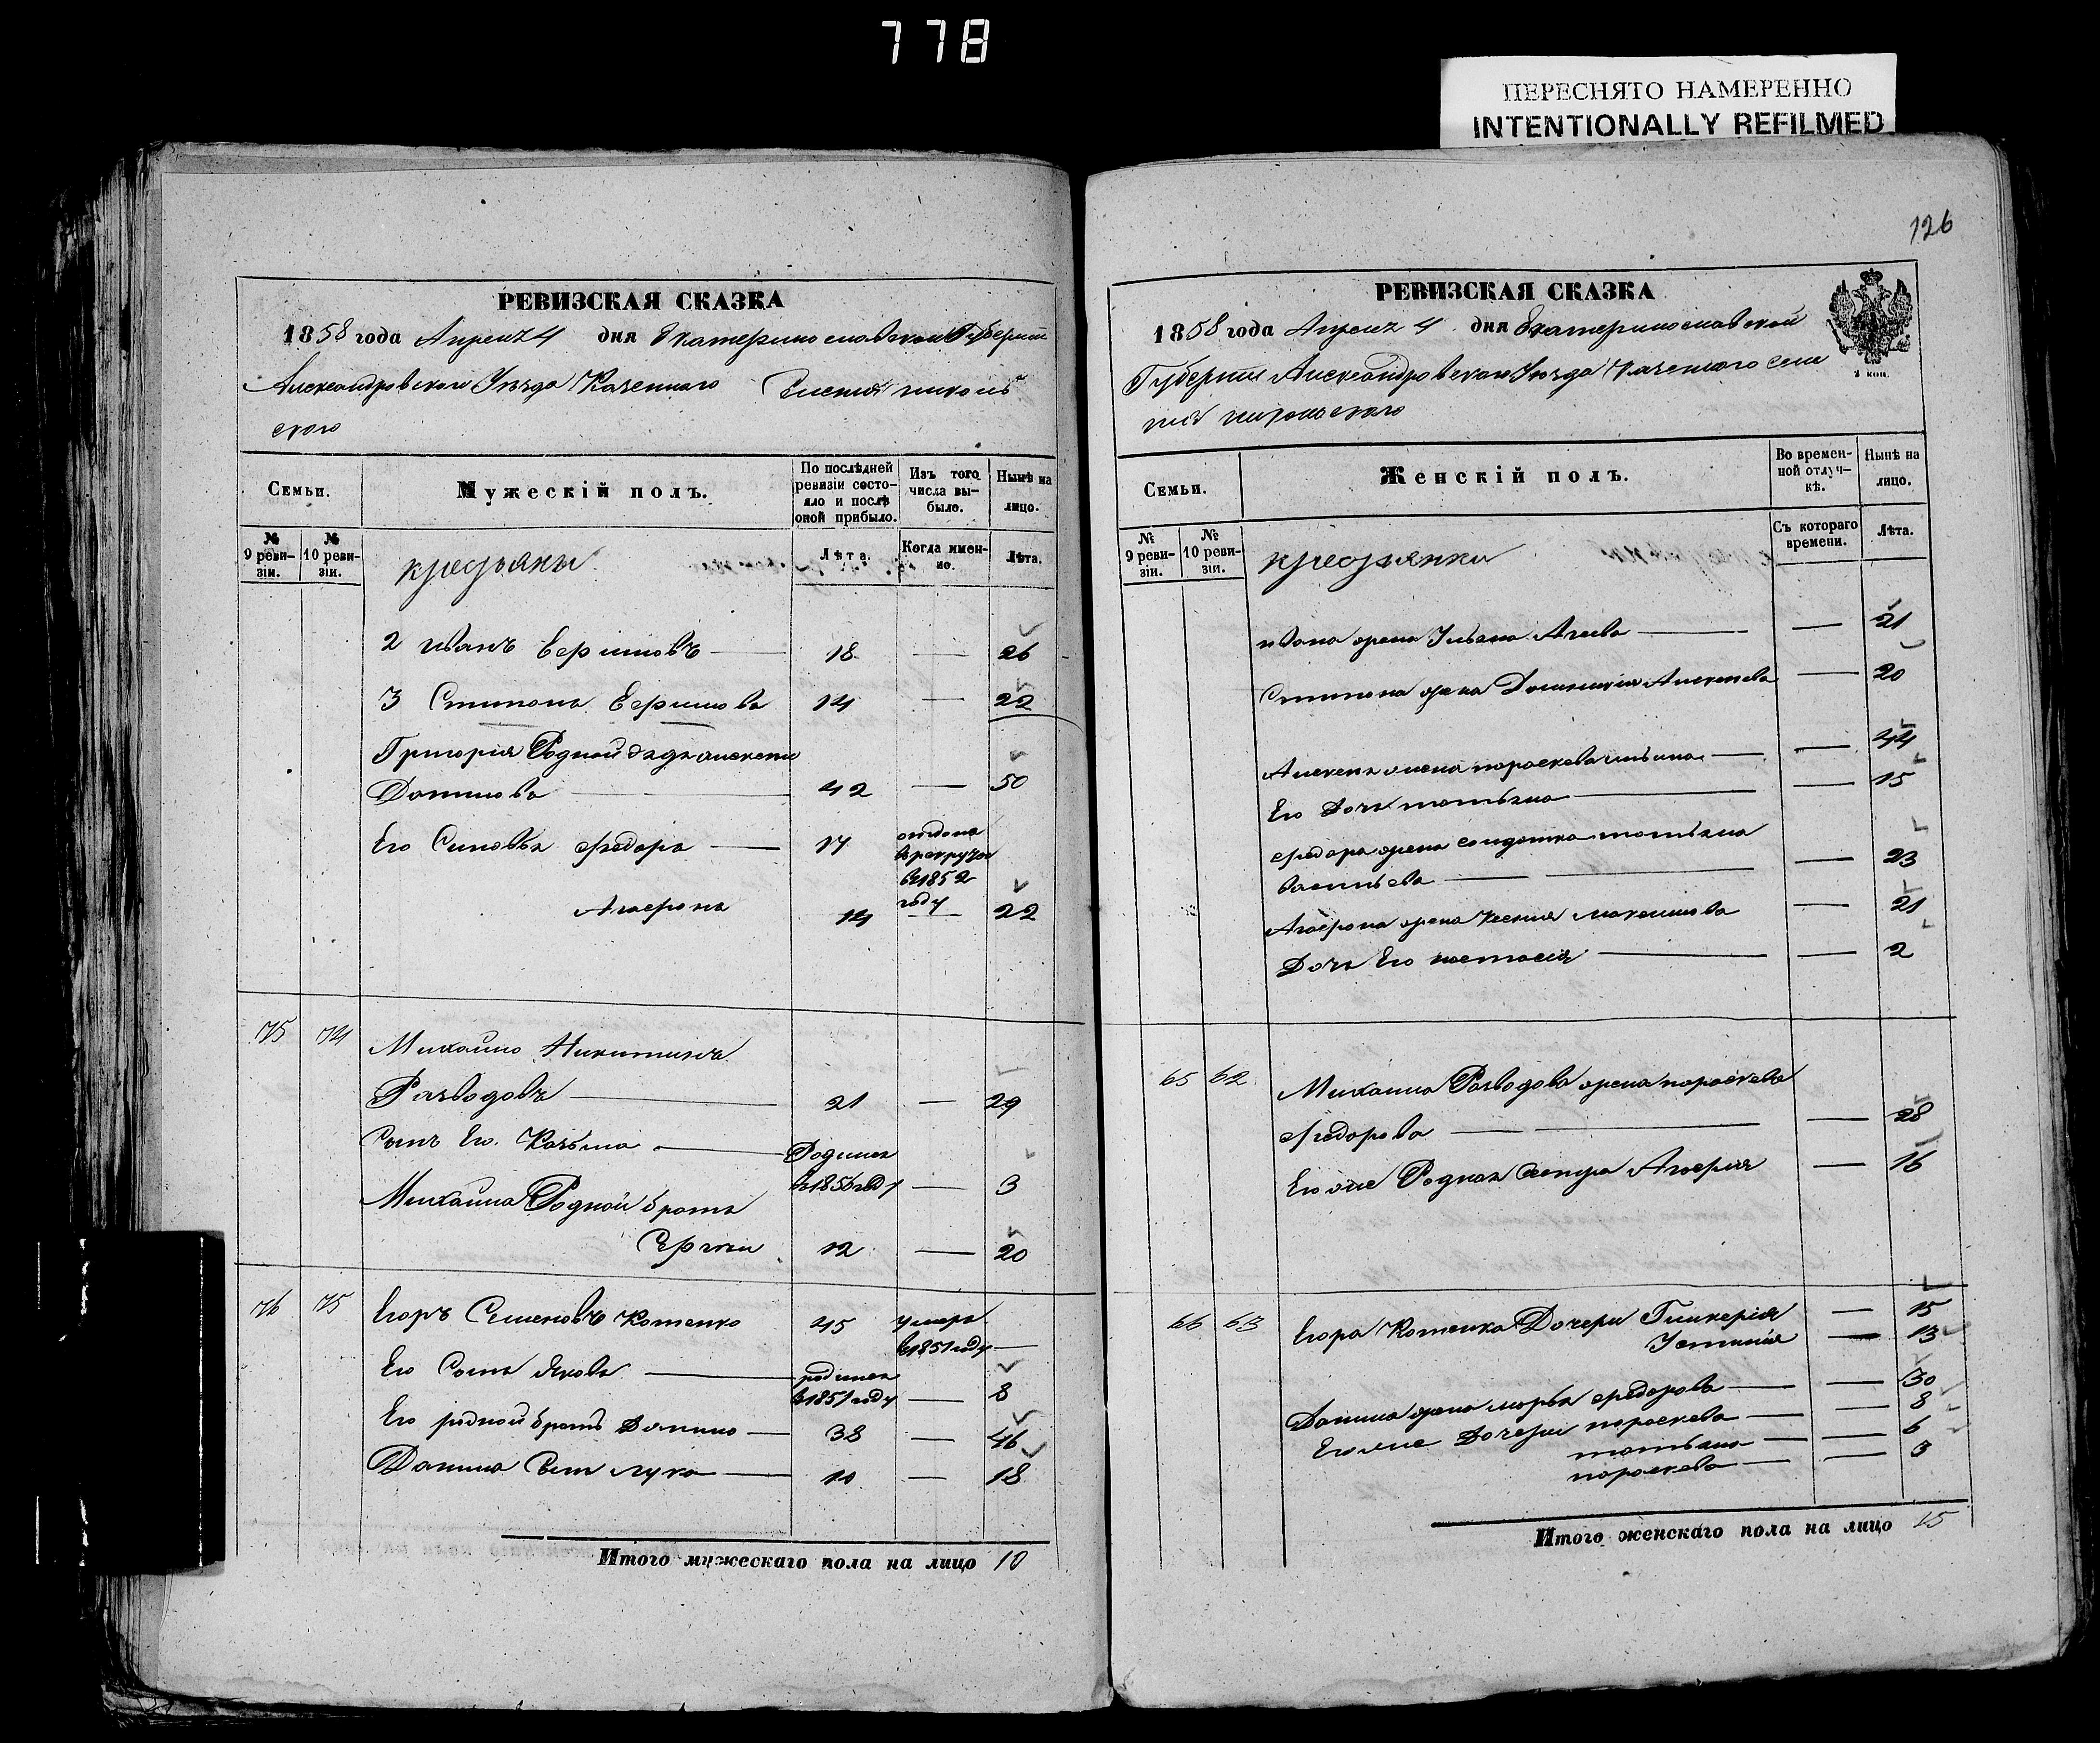 778
ПЕРЕСНЯТО НАМЕРЕННО
INTENTIONALLY REFILMED
РЕВИЗСКАЯ СКАЗКА
1858 года Апреля 4 дня Екатеринославской Губернии
Александровского Уезда Казенного Селения николь
ского
Семьи.
Мужескій полъ.
По послѣдней ревизіи состояло и послѣ оной прибыло.
Изъ того числа выбыло.
Нынѣ на лицо.
№ 9 ревизіи.
№ 10 ревизіи.
крестьяны
Лѣта.
Когда именно.
Лѣта.
2 иванъ Ефимовъ 18 26
3 Степана Ефимова 14 22
Григорія Родной дядя алексей
Данилова 42 50
Его Сыновья федоръ 17 отдан в рекруты в 1852 году
Агафонъ 14 22
75 74 Михайло Никитинъ
Разводовъ 21 29
Сынъ Его Козьма Родился в 1856 году 3
Михайла Родной братъ
Сергей 12 20
76 75 Егоръ Семеновъ Котенко 45 умеръ в 1851 году
Его Сынъ Яковъ родился в 1851 году 8
Его родной братъ Данило 38 46
Данила Сын лука 10 18
Итого мужескаго пола на лицо 10
126
РЕВИЗСКАЯ СКАЗКА
1858 года Апреля 4 дня Екатеринославской
Губернии Александровского Уезда Казенного селе
ния никольского
2 коп.
Семьи.
Женскій полъ.
Во временной отлучкѣ.
Нынѣ на лицо.
№ 9 ревизіи.
№ 10 ревизіи.
крестьянки
Съ котораго времени.
Лѣта.
ивана жена Ульяна Агеева 21
Степана жена Домникия Алексеева 20
Алексея жена параскева ильина 44
Его Дочь татьяна 15
федора жена солдатка татьяна
васильева 23
Агафона жена Ксения максимова 21
Дочь Его настасия 2
65 62 Михаила Разводова жена параскева
федорова 28
Его же Родная Сестра Агафия 16
66 63 Егора Котенка Дочери Гликерія 15
Устинія 13
Данила жена марья федорова 30
Его же Дочери параскева 8
татьяна 6
параскева 3
Итого женскаго пола на лицо 15